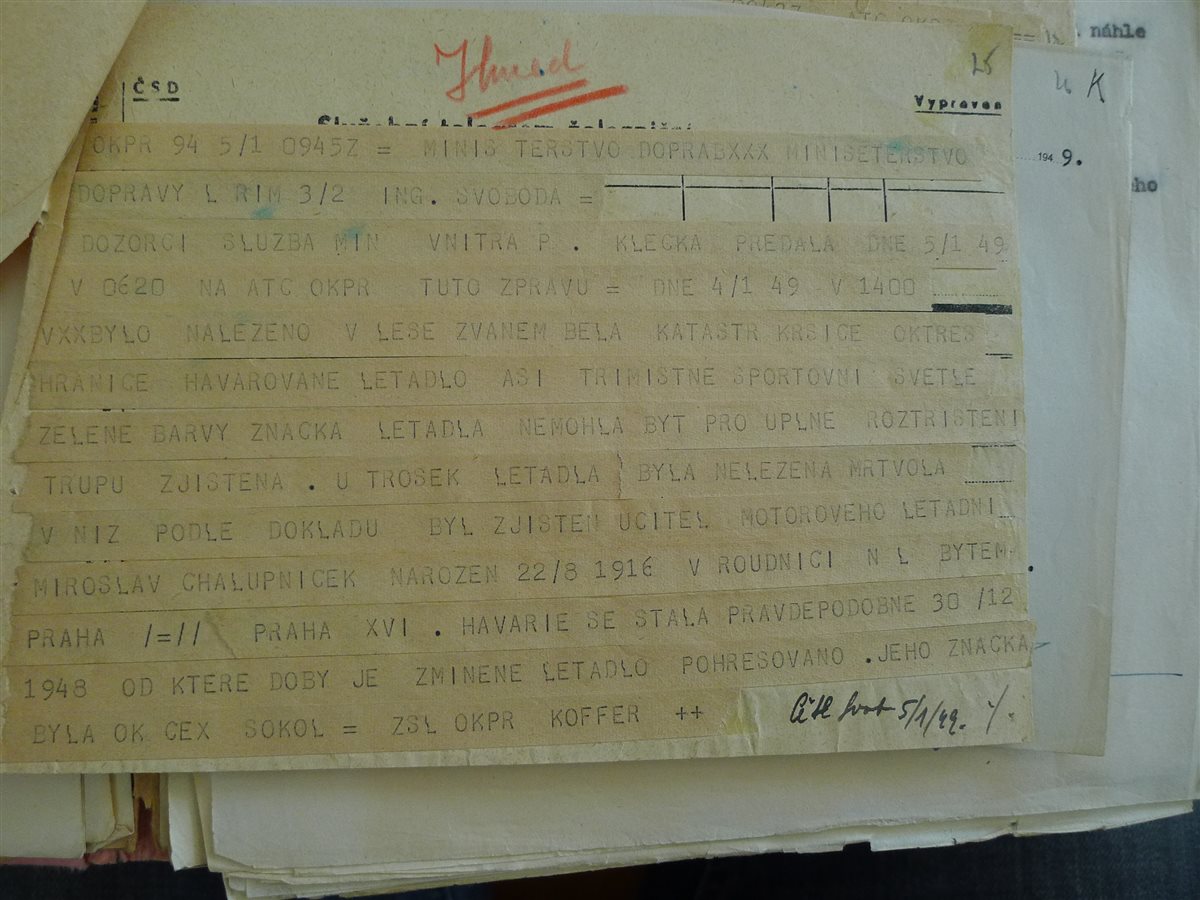 náhle
Ihned
25
K
ČSD
Vypraven
Služební telegram železniční
194 9.
ého
OKPR 94 5/1 0945Z = MINIS TERSTVO DOPRABXXX MINISETERSTVO
DOPRAVY L RIM 3/2 ING. SVOBODA =
DOZORCI SLUZBA MIN VNITRA P . KLECKA PREDALA DNE 5/1 49
V 0620 NA ATC OKPR TUTO ZPRAVU = DNE 4/1 49 V 1400
VXXBYLO NALEZENO V LESE ZVANEM BELA KATASTR KRSICE OKTRES
HRANICE HAVAROVANE LETADLO ASI TRIMISTNE SPORTOVNI SVETLE
ZELENE BARVY ZNACKA LETADLA NEMOHLA BYT PRO UPLNE ROZTRISTENI
TRUPU ZJISTENA . U TROSEK LETADLA BYLA NELEZENA MRTVOLA
V NIZ PODLE DOKLADU BYL ZJISTEN UCITEL MOTOROVEHO LETADNI
MIROSLAV CHALUPNICEK NAROZEN 22/8 1916 V ROUDNICI N L BYTEM
PRAHA /=// PRAHA XVI . HAVARIE SE STALA PRAVDEPODOBNE 30 /12
1948 OD KTERE DOBY JE ZMINENE LETADLO POHRESOVANO .JEHO ZNACKA
BYLA OK CEX SOKOL = ZSL OKPR KOFFER ++
5/1/49.